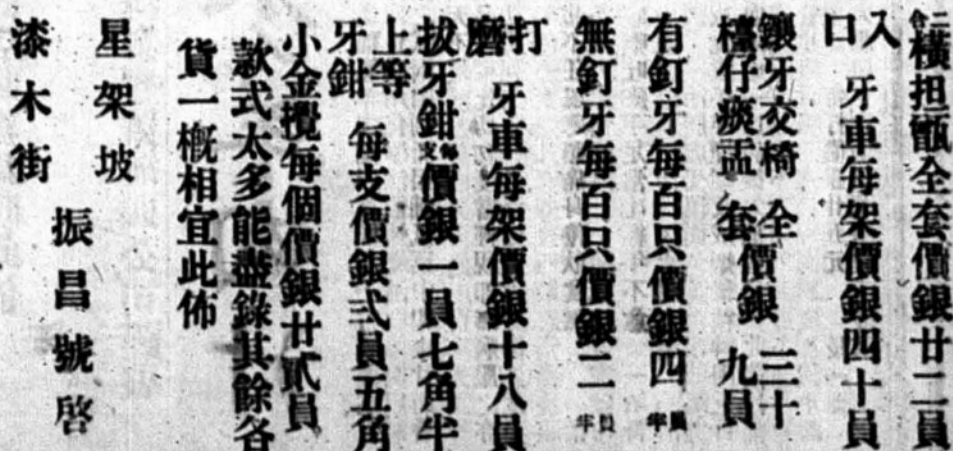 二合横担甑全套價銀廿二員
入口牙車每架價銀四十員
鑲牙交椅全套價銀三十九員
檯仔痰盂
有釘牙每百只價銀四員半
無釘牙每百只價銀二員半
打磨牙車每架價銀十八員
拔牙鉗每支價銀一員七角半
上等牙鉗每支價銀弍員五角
小金攪每個價銀廿貳員
款式太多能盡錄其餘各
貨一概相宜此佈
星架坡
漆木街
振昌號啓